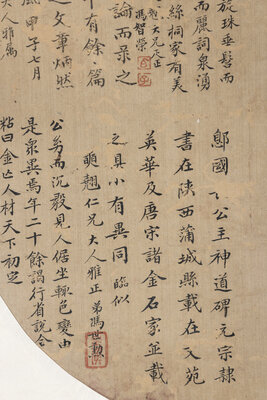 旋珠垂髫而
而麗詞泉湧
絲桐家有美
大兄正
馮智榮
論而采之
中有餘篇
之文章炳然
甲子七月
大人雅属
鄎國公主神道碑元宗隸
書在陝西蒲城縣載在文苑
英華及唐宋諸金石家並載
之具小有異同 臨似
奭翹仁兄大人雅正 弟馮世勳
而沉毅見人倨坐輒色變由
是眾異焉年二十餘謁行省說令
粘曰金亡人材天下初定